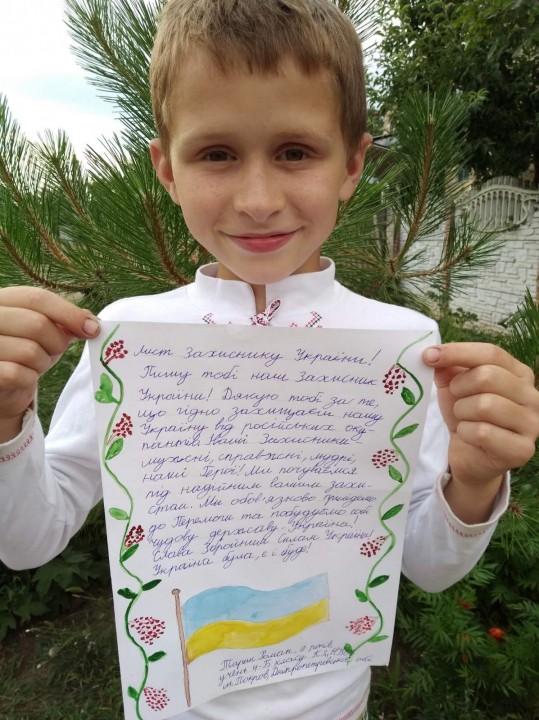 Лист Захиснику України!
Пишу тобі наш Захисник
України! Дякую тобі за те,
що гідно захищаєш нашу
Україну від російських оку-
пантів. Наші Захисники
мужні, справжні, мудрі,
наші Герої! Ми почуваємся
під надійним вашим захи-
стом. Ми обов'язково прийдемо
до Перемоги та побудуємо
чудову державу - Україна!
Слава Збройним Силам України!
Україна була, є і буде!
Роман, 9 років
учень 4-Б класу
м. Покров, Дніпропетровської обл